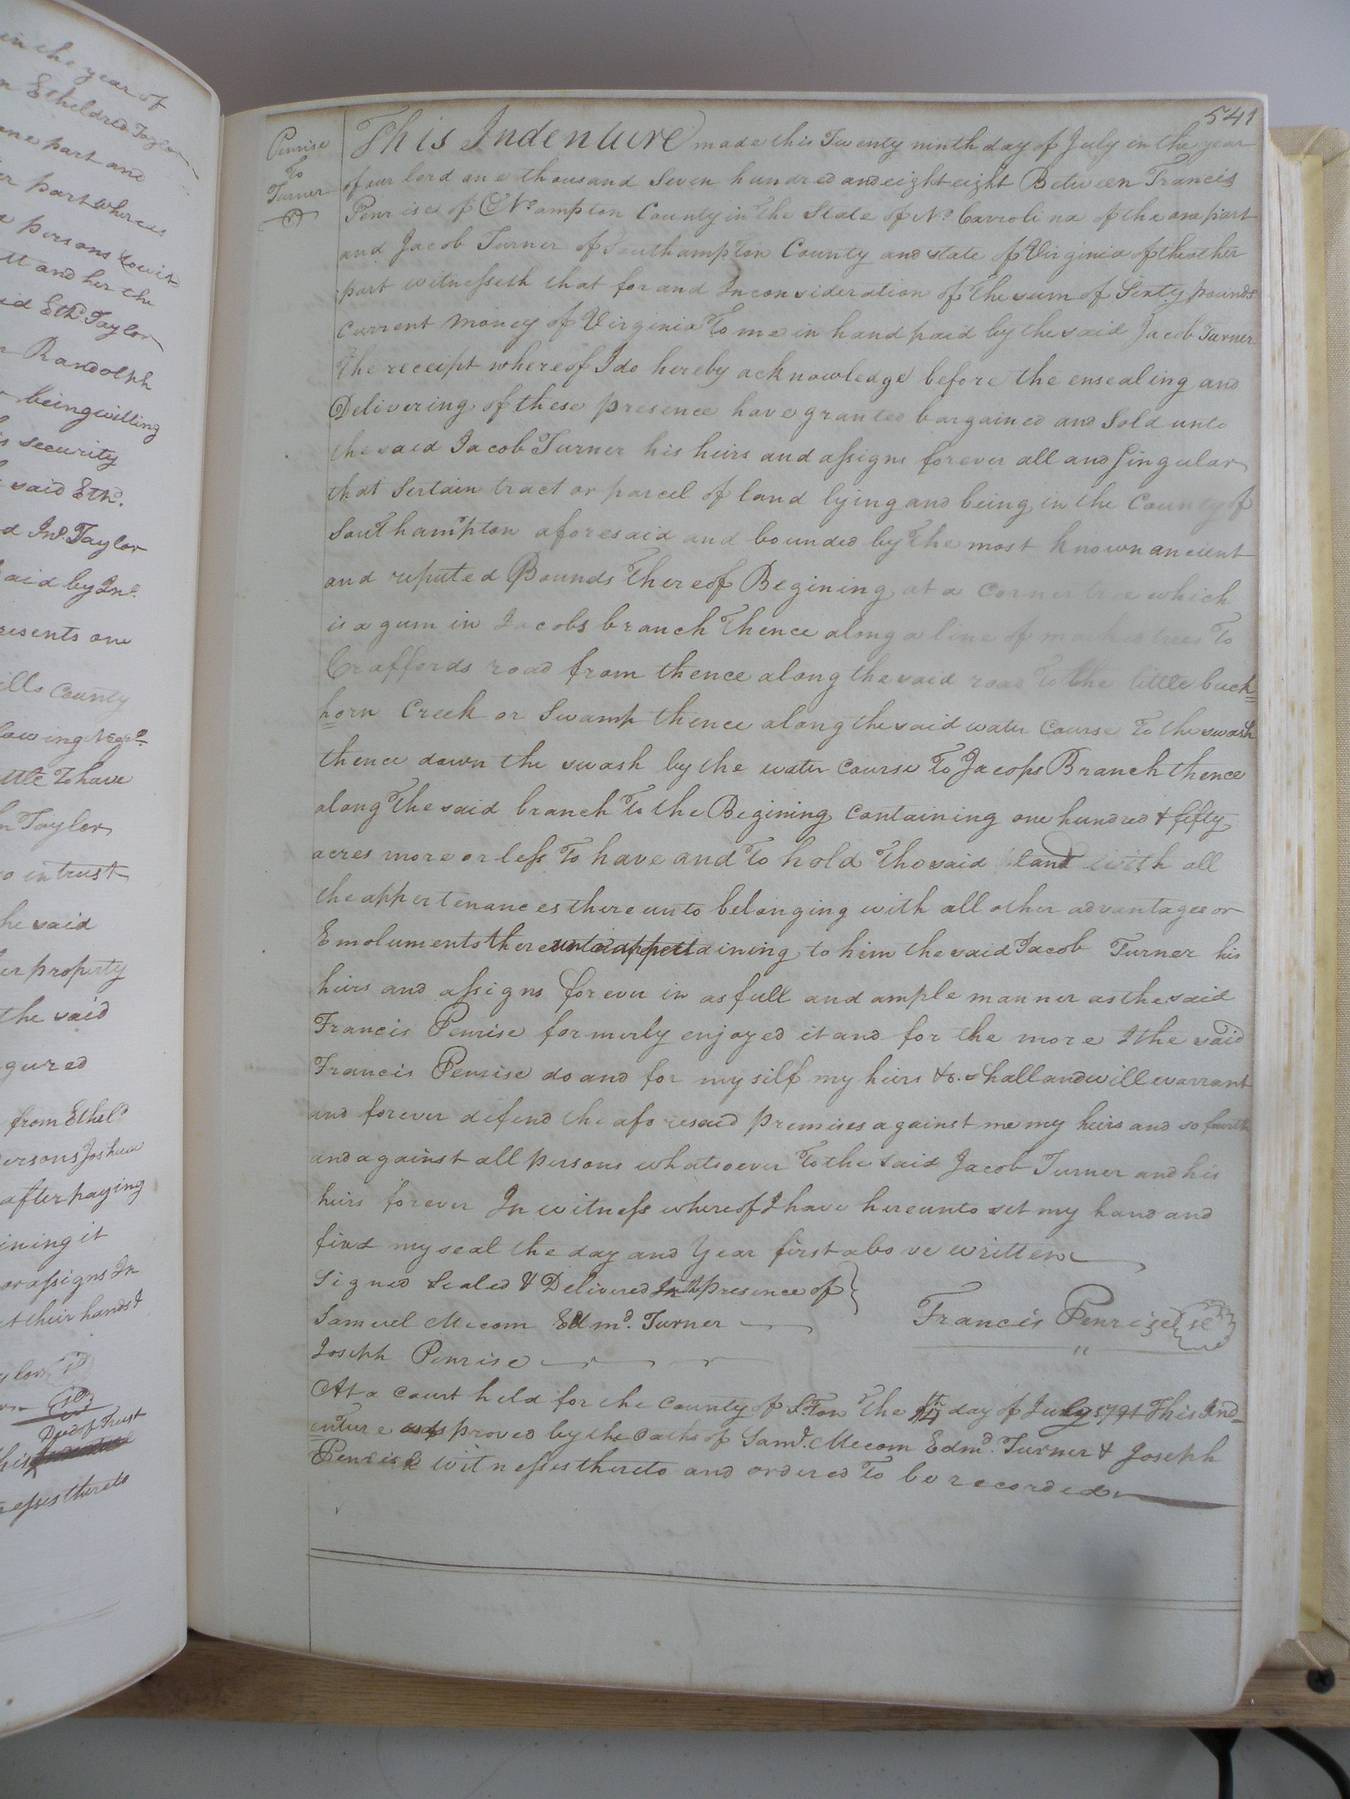 in the year of
n Etheldred Taylor
one part and
er part whereas
persons towit
tt and her the
id Ethd. Taylor
Randolph
being willing
is security
said Ethd.
d Jno. Taylor
aid by Jno.
resents one
ills County
lowing Negro
ttle To have
hn Taylor
o in trust
he said
er property
the said
gured
from Etheld
ersons Joshua
after paying
ining it
or assigns In
et their hands &
Deed of Trust
this
nesses thereto
541
Penrise
To
Turner
This Indenture made this Twenty ninth day of July in the year
of our lord one thousand Seven hundred and eight eight Between Francis
Penrise of No. ampton County in the State of No. Carrolina of the one part
and Jacob Turner of Southampton County and state of Virginia of the other
part witnesseth that for and Inconsideration of the sum of Sixty pounds
Current Money of Virginia To me in hand paid by the said Jacob Turner
the receipt whereof I do hereby acknowledge before the ensealing and
Delivering of these presence have granted bargained and Sold unto
the said Jacob Turner his heirs and assigns forever all and Singular
that Sertain tract or parcel of land lying and being in the County of
Southampton aforesaid and bounded by the most known ancient
and reputed Bounds Thereof Begining at a Corner tree which
is a gum in Jacobs branch Thence along a line of marked trees To
Craffords road from thence along the said road To the little buck=
horn Creek or Swamp thence along the said water Course To the swash
thence down the swash by the water Course To Jacops Branch thence
along The said branch To the Begining Containing one hundred & fifty
acres more or less To have and To hold The said land with all
the appertenances there unto belonging with all other advantages or
Emoluments there unto appertaining to him the said Jacob Turner his
heirs and assigns forever in as full and ample manner as the said
Francis Penrise formerly enjoyed it and for the more I the said
Francis Penrise do and for my self my heirs &c. shall and will warrant
and forever defend the aforesaid premises against me my heirs and so fourth
and against all persons whatsoever To the Said Jacob Turner and his
heirs forever In witness whereof I have hereunto set my hand and
fixd my seal the day and Year first above written
Signed Sealed & Delivered In presence of
Samuel Mecom Edmd. Turner
Francis Penrise
Joseph Penrise
At a Court held for the County of S.Ton The day of July 1791 This Ind=
enture was proved by the Oaths of Saml. Mecom Edmd. Turner & Joseph
Penrise witnesses thereto and ordered To be recorded